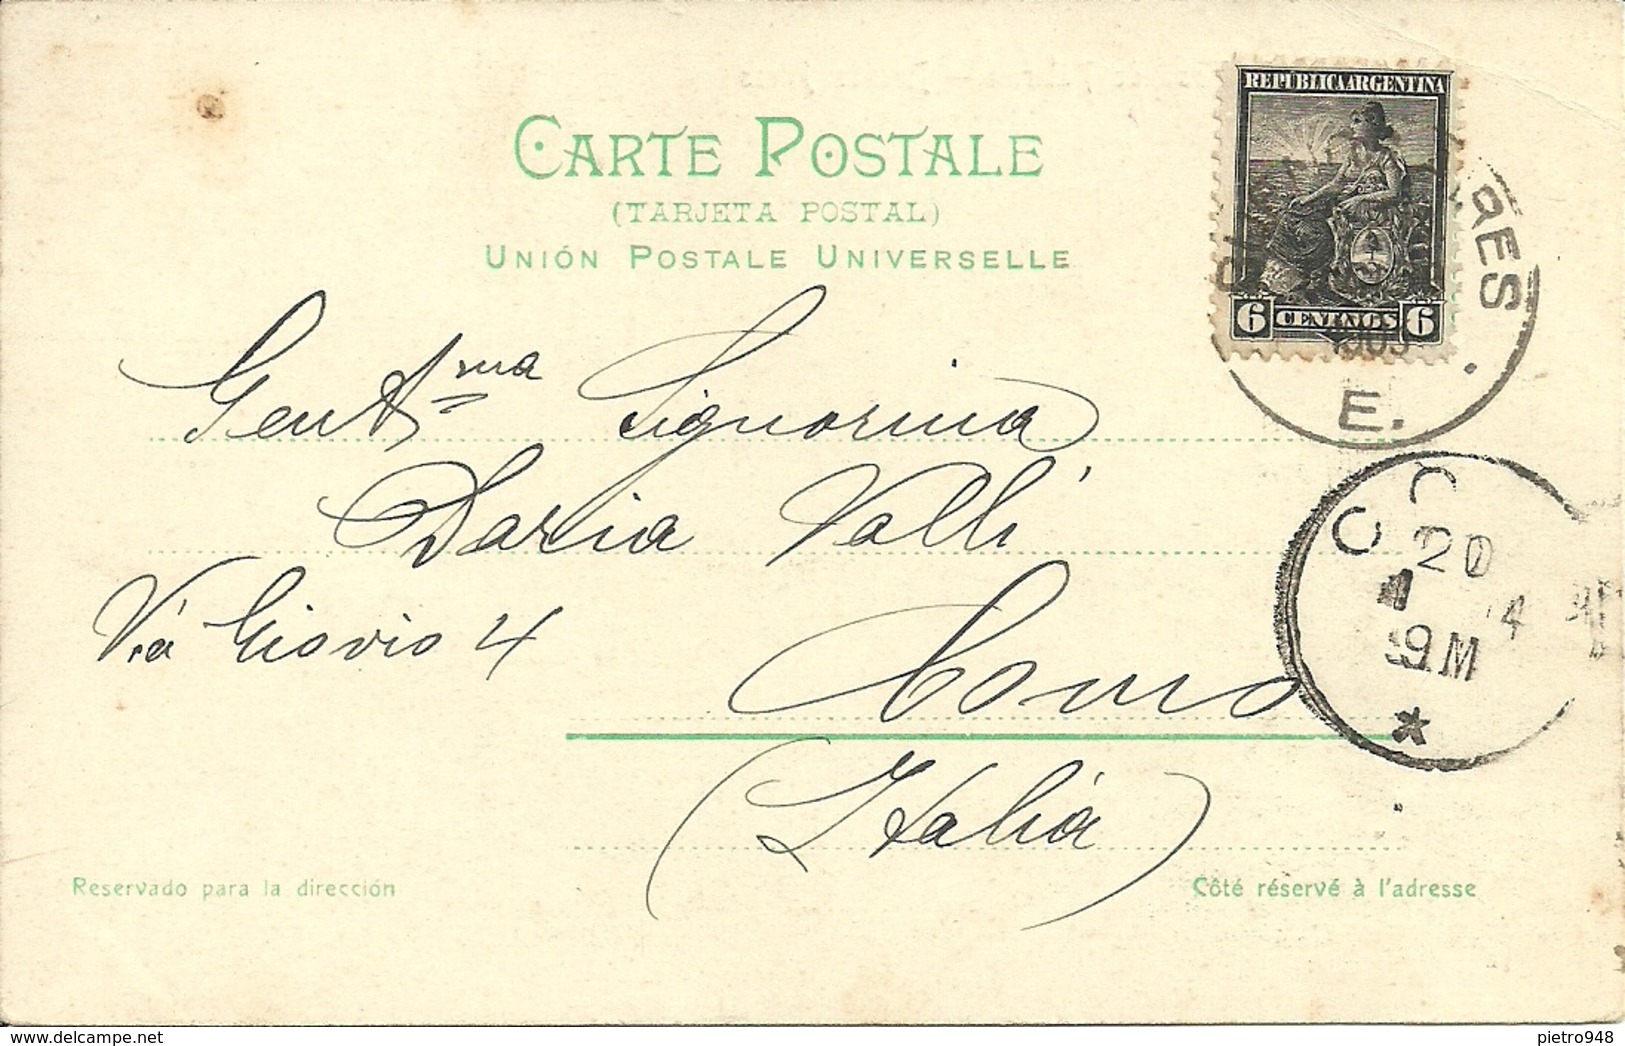 CARTE POSTALE
(TARJETA POSTAL)
UNIÓN POSTALE UNIVERSELLE
REPÚBLICA ARGENTINA
6 CENTAVOS 6
AIRES
1903
E.
Gentma Signorina
Daria Valli
Via Giovio 4
Como
(Italia)
CO
20
1 04
9M
*
Reservado para la dirección
Côté réservé à l'adresse
delcampe.net
pietro948